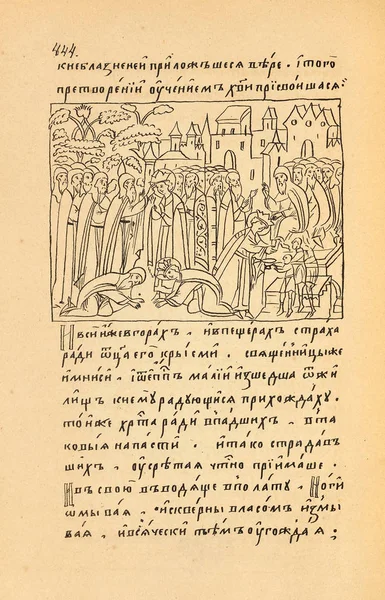 444.
кнеблазненей приложъшеся вѣре. ітого
претворенїи оученїемъ хв҃и прїсвоишася:
Ивсиижевгорахъ, ивпещерахъ страха
ради ѿц҃а его крысми. сщ҃енницыже
имниси, іѿепп҃ъ малїи изшедша ѿжи
лищъ кнемꙋ радꙋющися прихождахꙋ.
тоиже хр҃та ради впадшихъ, вта
ковыя напасти. итако страдав
шихъ, оусрѣтая чт҃но прїимаше.
Ивъ свою въводяше вполатꙋ, Ноги
ѡмывая, ѻскверны власомъ измы
вая, ивсячески тѣмъ оугождая.